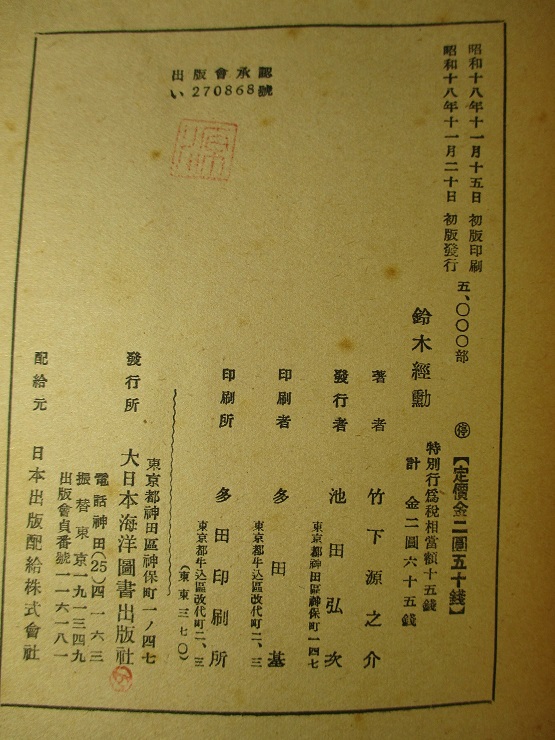 昭和十八年十一月十五日 初版印刷
昭和十八年十一月二十日 初版發行
五、〇〇〇部
出版會承認
い270868號
鈴木經勳
㊡【定價金二圓五十錢】
特別行爲税相當額十五錢
計 金二圓六十五錢
著者 竹下源之介
發行者 池田弘次
東京都神田區神保町一ノ四七
印刷者 多田基
東京都牛込區改代町二、三
印刷所 多田印刷所
東京都牛込區改代町二、三
(東東三七〇)
發行所 大日本海洋圖書出版社
東京都神田區神保町一ノ四七
電話神田(25)四一六三
振替東京一九一三四九
出版會員番號一一六一八一
配給元 日本出版配給株式會社